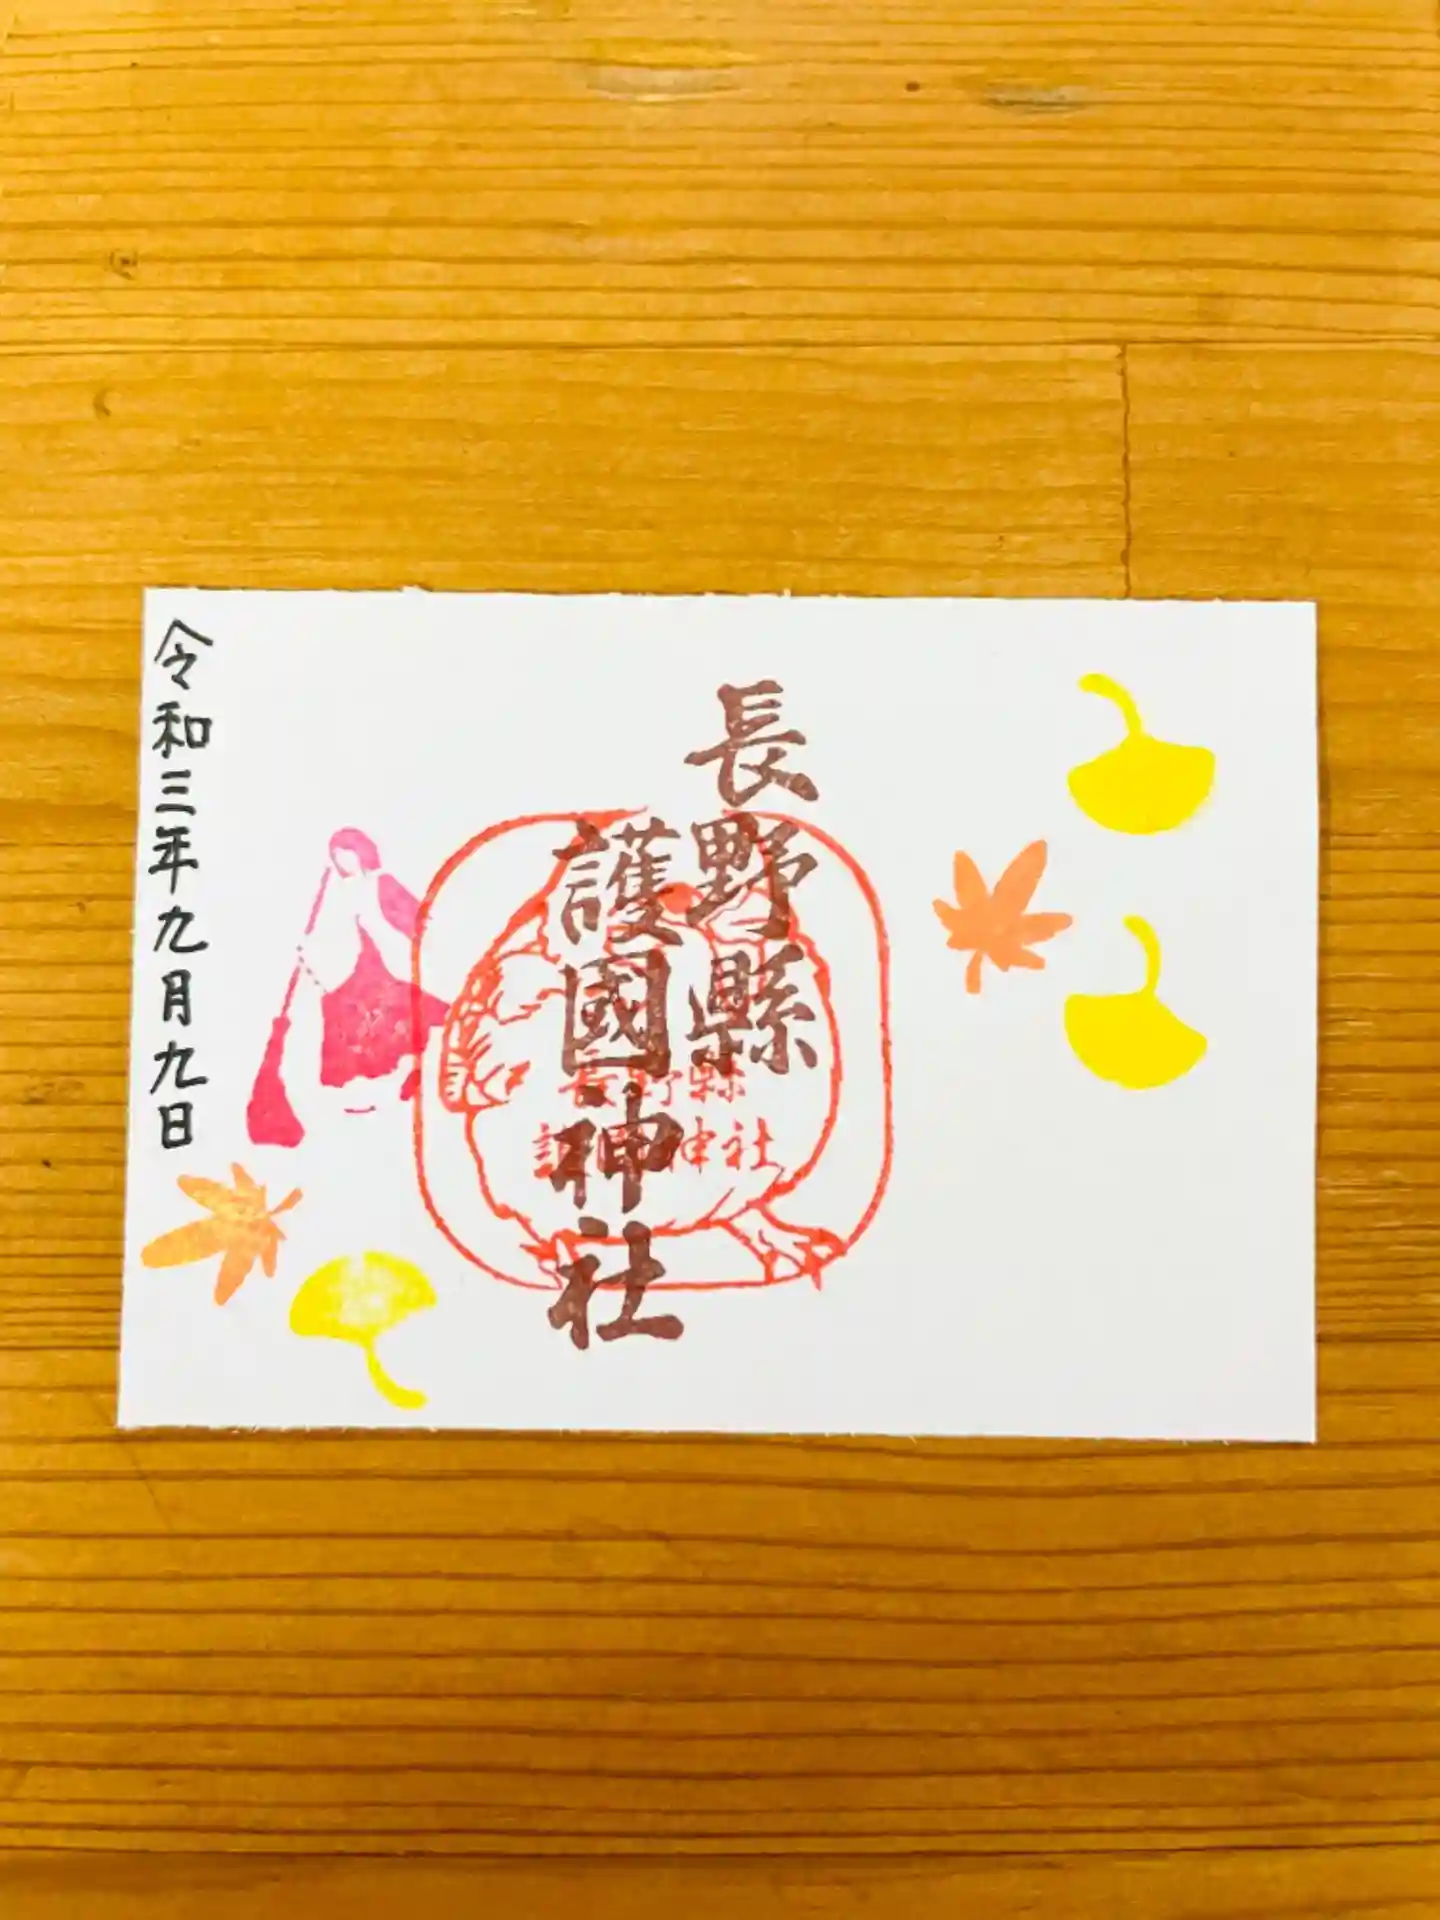 長野縣
護國神社
長野縣
護國神社
令和三年九月九日